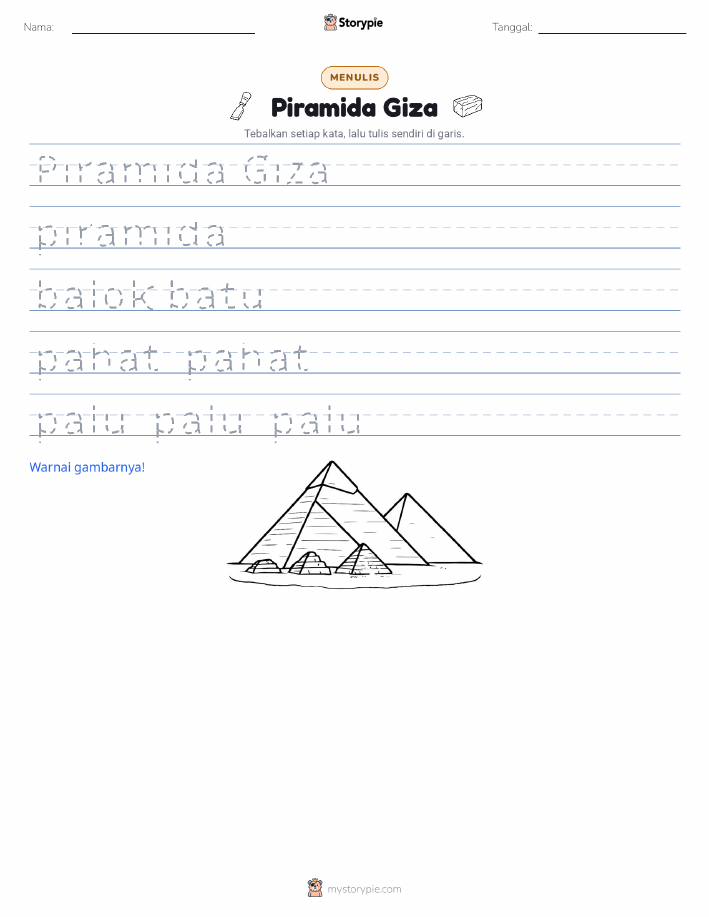 Nama:
Storypie
Tanggal:
MENULIS
Piramida Giza
Tebalkan setiap kata, lalu tulis sendiri di garis.
Piramida Giza
piramida
balok batu
pahat pahat
palu palu palu
Warnai gambarnya!
mystorypie.com